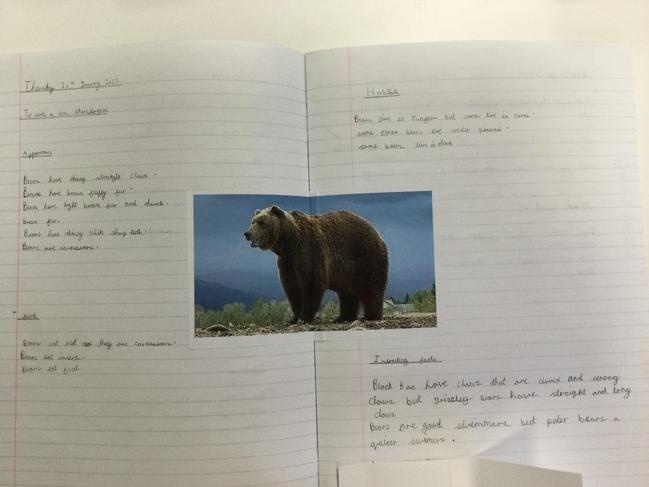 Thursday 26th January 2023
To write a non
Appearance
Bears have sharp straight claws.
Bears have brown fluffy fur.
Bears have light brown fur and dark
brown fur.
Bears have shiny white sharp teeth.
Bears are carnivours.
Bears eat so they are carnivours.
Bears eat insects.
Bears eat fruit.
Habitats
Bears live in Jungles but some live in caves.
some bears live under ground.
some bears live in dens
Interesting facts
Black Bears have claws that are and strong
claws but grizzley bears have straight and long
claws
Bears are good swimmers but poler bears a
swimers.